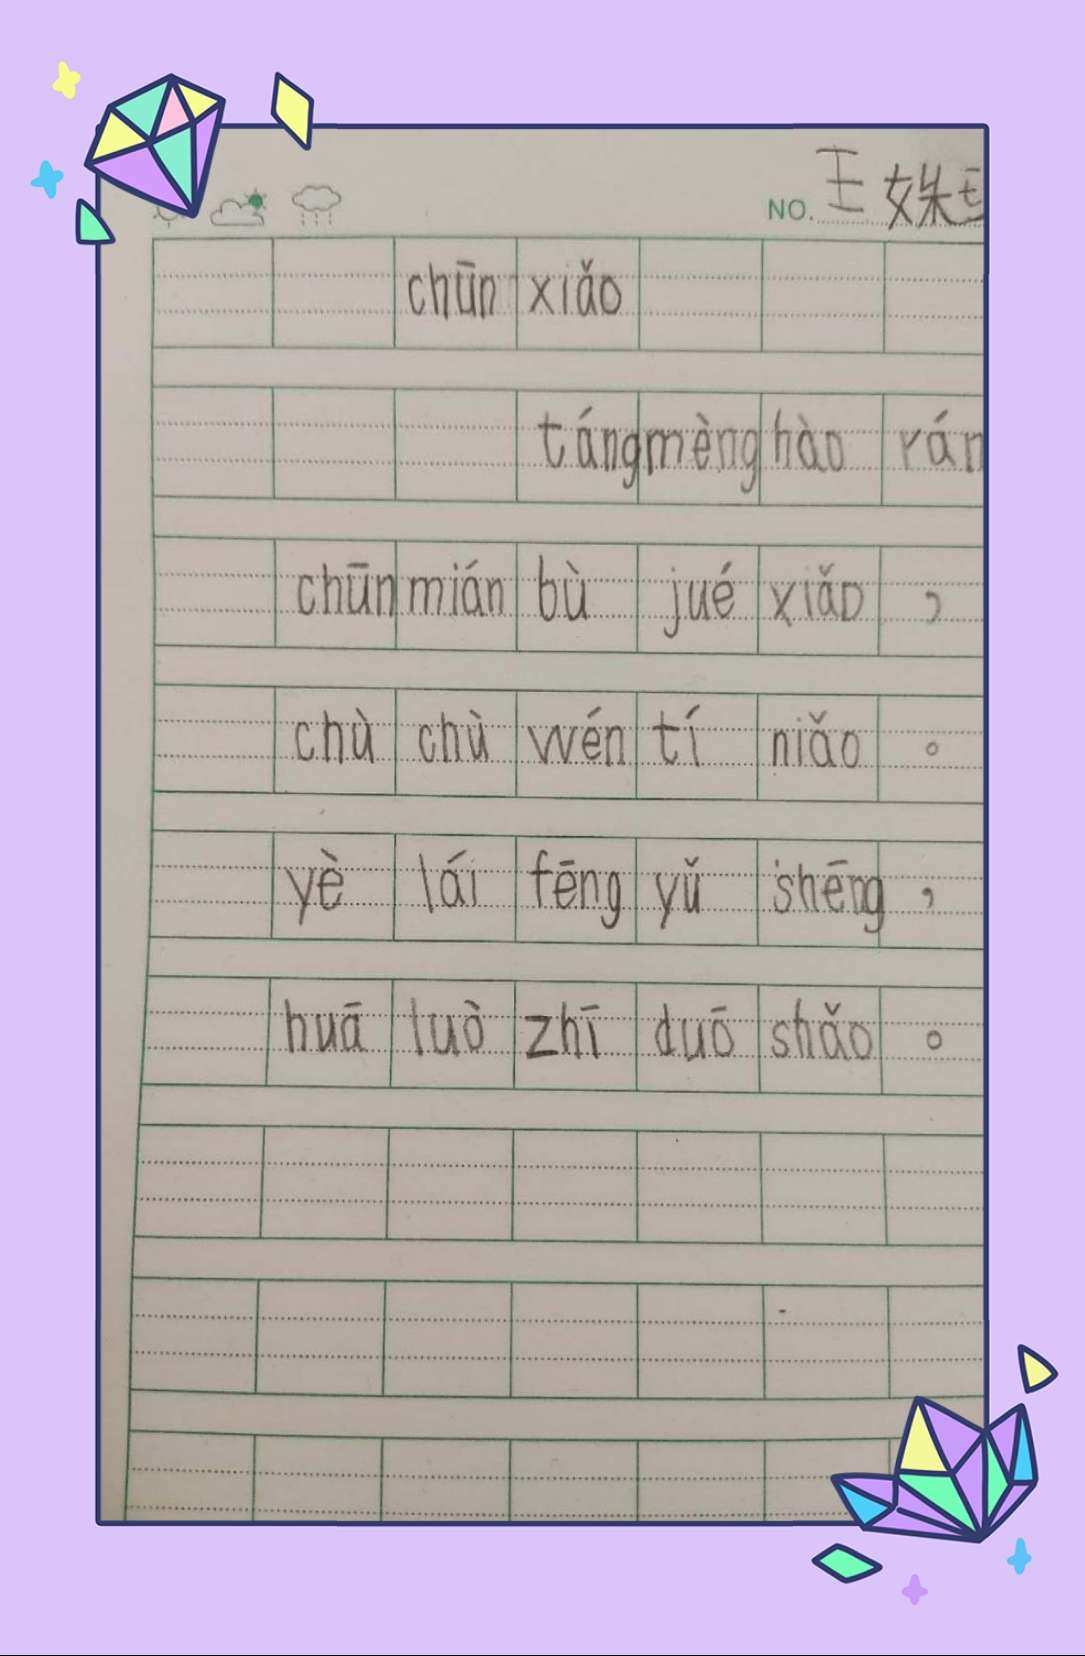 NO. 王姝
chūn xiǎo
táng mèng hào rán
chūn mián bù jué xiǎo ，
chù chù wén tí niǎo 。
yè lái fēng yǔ shēng ，
huā luò zhī duō shǎo 。